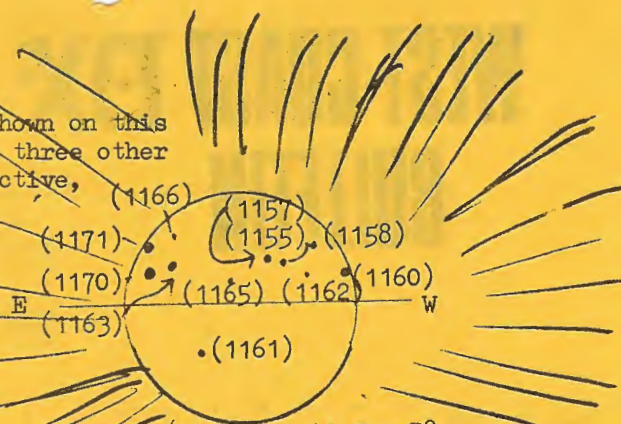 hown on this
three other
ctive,
(1166)
(1157)
(1171)
(1155) (1158)
(1170)
(1165) (1162) (1160)
E W
(1163)
(1161)